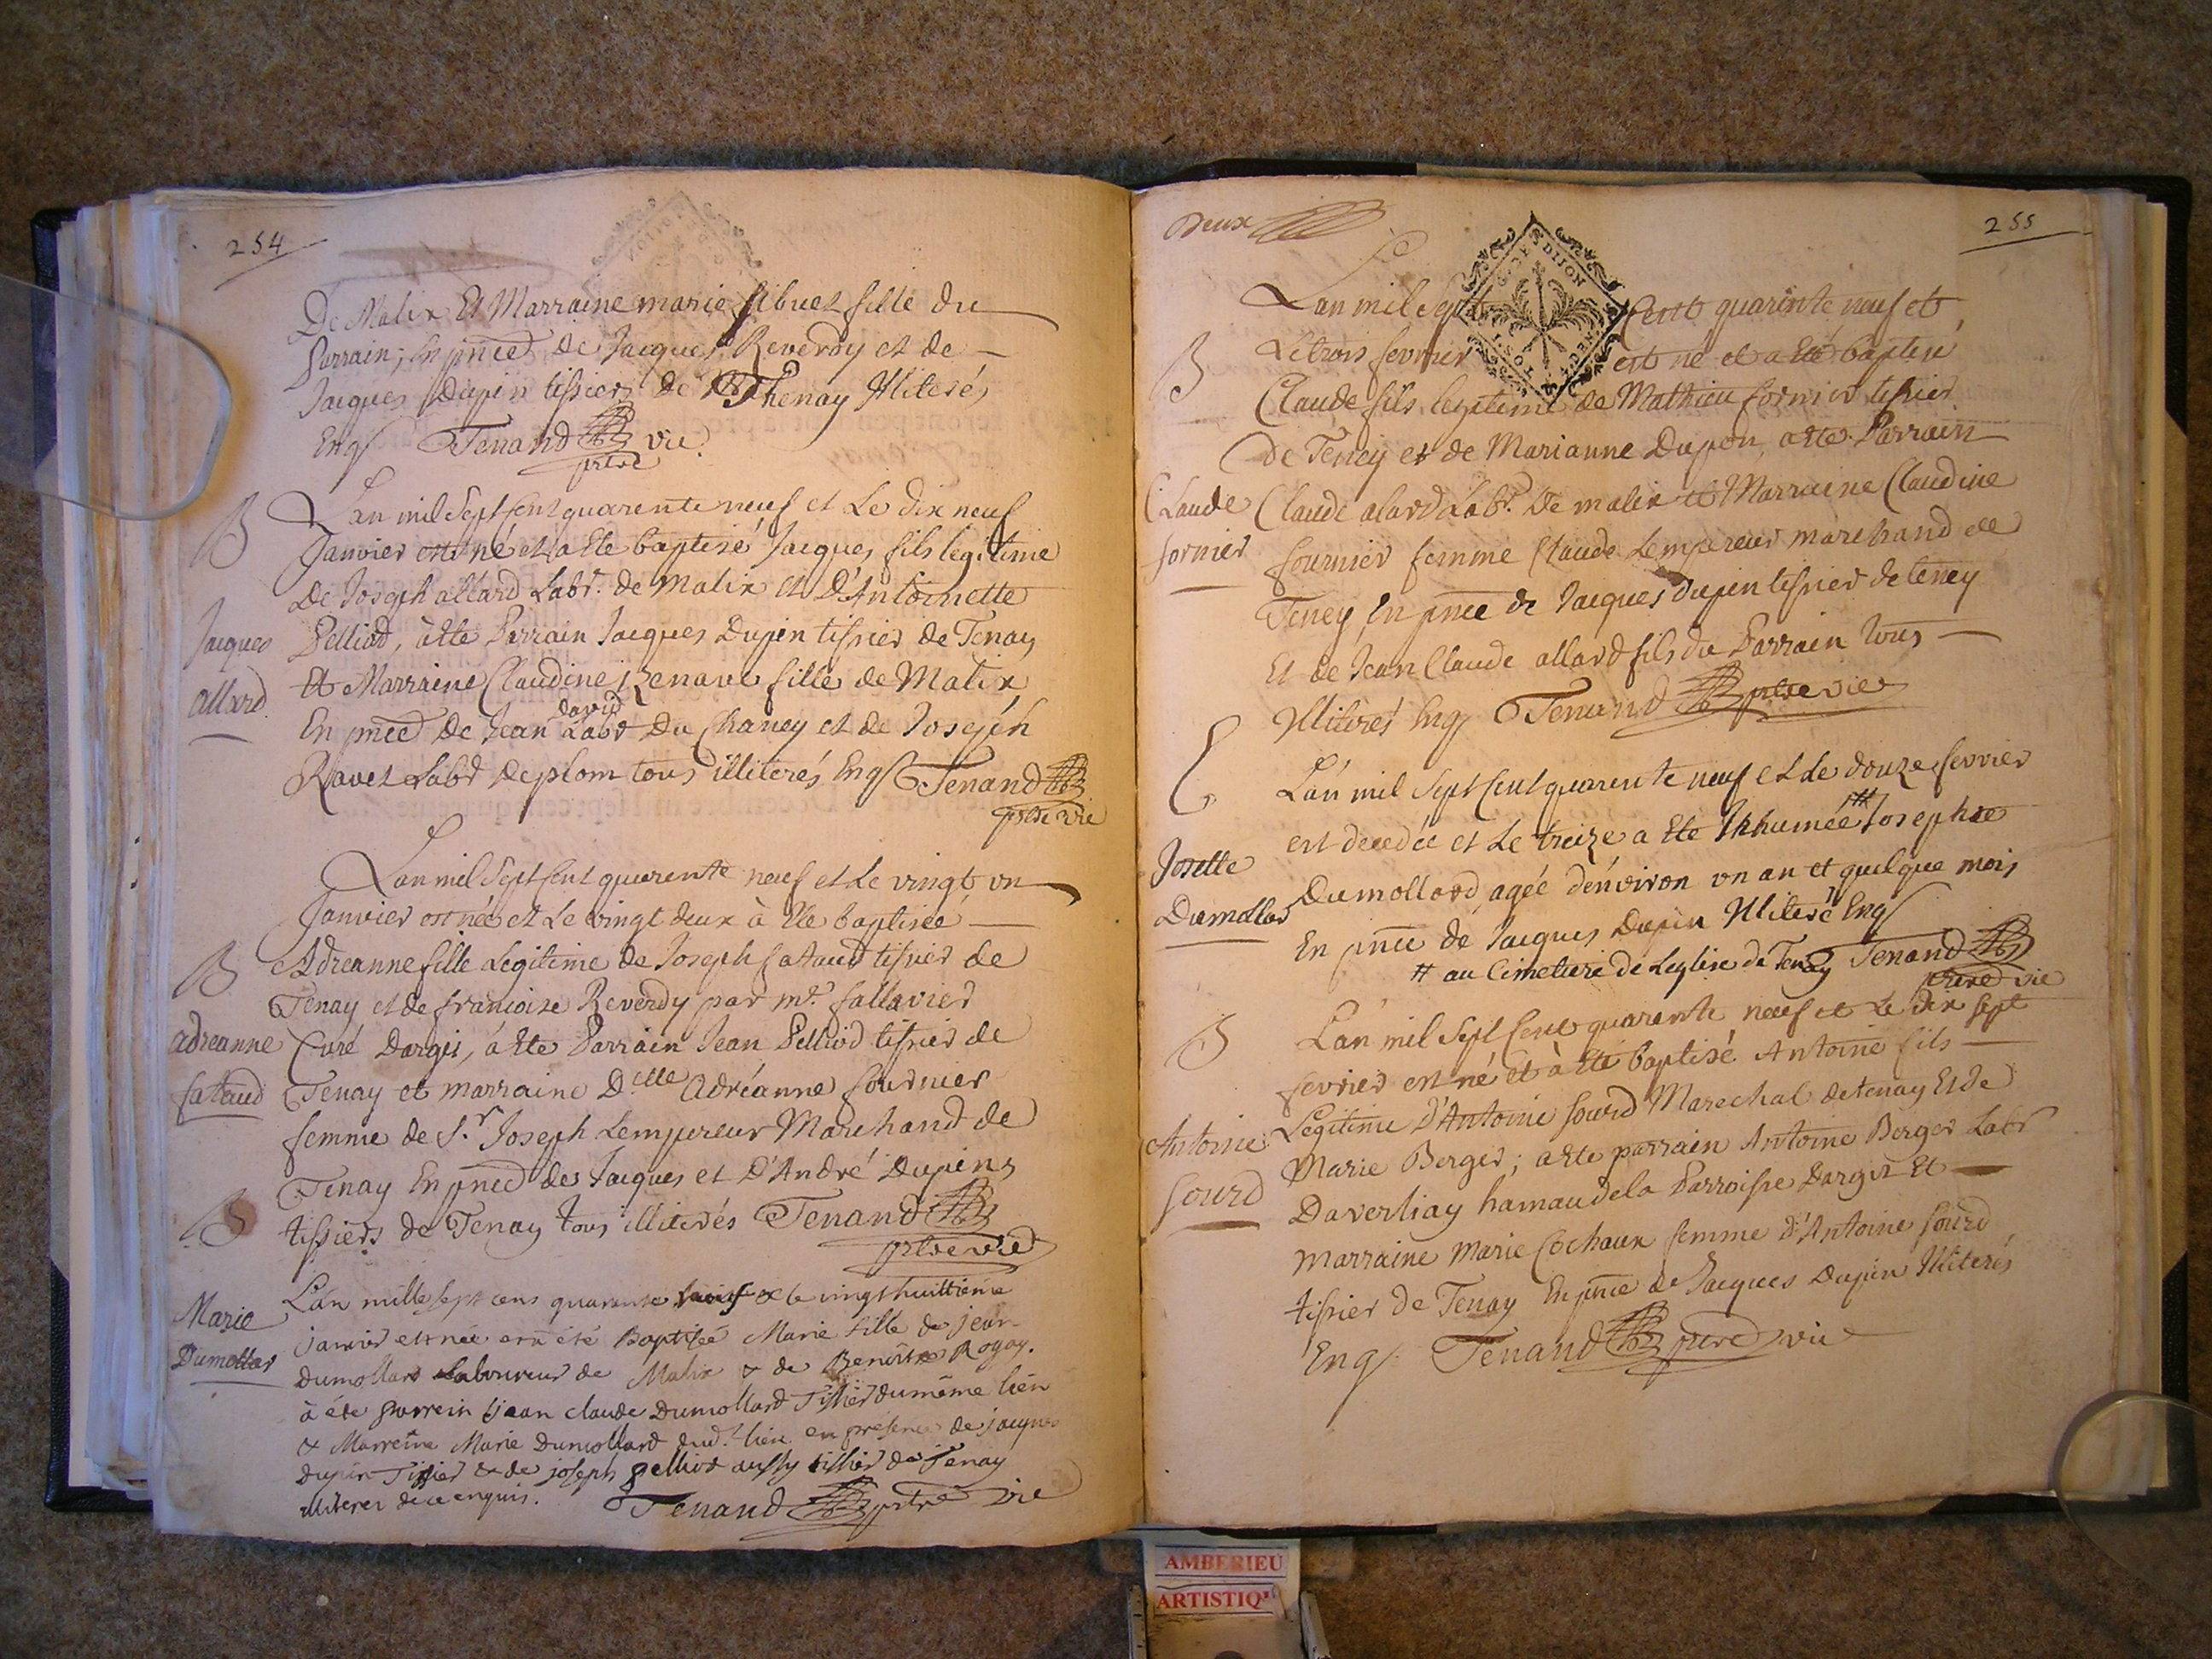 254
De Malix Et Marraine marie sibuet fille du
Parrain, En pnce de Jacques Reverdy et de
Jacques Dupin tissier de Thenay Illiterés
Enqs Tenand vic.
prtre
B
L'an mil Sept Cent quarente neuf et Le dix neuf
Janvier est né et a Ete baptisé Jacques fils legitime
De Joseph allard Labr. de Malix et D'Antoinette
Jacques
allard
Pelliod, à Ete Parrain Jacques Dupin tissier de Tenay
Et Marraine Claudine Renave fille de Malix
david
En pnce de Jean Labr Du Chaney et de Joseph
Ravet Labr de plom tous illiterés Enqs Tenand
prtre vic
L'an mil Sept Cent quarente neuf et Le vingt un
Janvier est née et Le vingt deux à Ete baptisée
B
Adreanne fille Legitime de Joseph sataud tissier de
Tenay et de francoise Reverdy par mr. fallavier
adreanne
sataud
Curé Dargis, à Ete Parrain Jean Pelliod tissier de
Tenay et marraine Delle Adréanne fournier
femme de Sr. Joseph Lempereur Marchand de
Tenay En pnce des Jacques et D'André Dupins
tissiers de Tenay tous illiterés Tenand
prtre vic
B
Marie
Dumollar
L'an mille sept cens quarante neuf & le vingt huittième
janvier est née et a été Baptisée Marie fille de jean
dumollard Laboureur de Malix & de Benoitte Rogay.
à été parrein jean claude Dumollard Tissier du même lieu
& Marreine Marie dumollard dud. lieu en présence de jacques
dupin Tissier & de joseph pelliod aussy tissier de Tenay
illiteres de ce enquis. Tenand prtre vic
Deux
255
DIJON
L'an mil Sept Cent quarente neuf et
B
Le trois fevrier est né et a Eté baptisé
Claude fils legitime de Mathieu fornier tissier
De Teney et de Marianne Dupon, a Ete Parrain
Claude
fornier
Claude alard Labr. De malix et Marraine Claudine
fournier femme Claude Lempereur marchand de
Teney, En pnce de Jacques dupin tissier de teney
Et de Jean Claude allard fils du Parrain tous
Illiterés Enqs Tenand prtre vic
L'an mil Sept Cent quarente neuf et Le douze fevrier
est decedée et Le treize a Ete Inhumée # Josephte
Josette
Dumollar
Dumollard agée d'environ un an et quelque mois
En pnce de Jacques Dupin Illiteré Enqs
# au Cimetiere de Leglise de Tenay Tenand
prtre vic
B
L'an mil Sept Cent quarente neuf et Le dix sept
fevrier est né et à Eté baptisé Antoine fils
Antoine
sourd
Legitime d'Antoine sourd Marechal de tenay Et de
Marie Berger; a Ete parrain Antoine Berger Labr
Daverliay hamau de la Parroisse Dargis Et
Marraine Marie Cochaux femme d'Antoine sourd
tissier de Tenay En pnce de Jacques Dupin Illiterés
Enqs Tenand prtre vic
AMBERIEU
ARTISTIQ